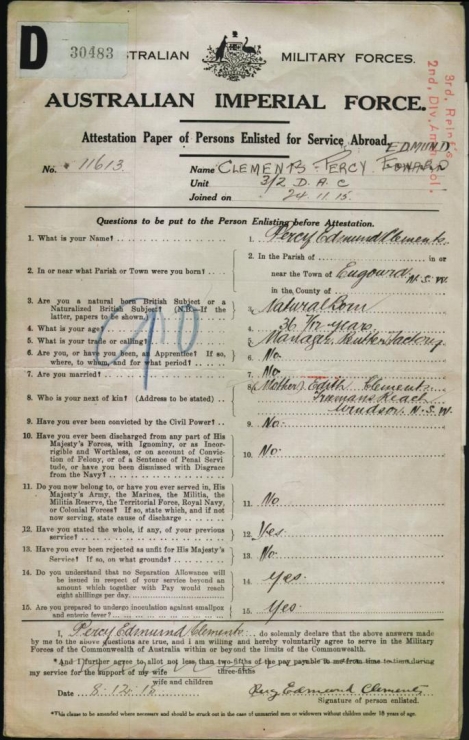 D
30483
AUSTRALIAN MILITARY FORCES.
3rd. Rein
2nd. Div. Am. Col.
AUSTRALIAN IMPERIAL FORCE.
Attestation Paper of Persons Enlisted for Service Abroad.
EDMUND
No. 11613 Name CLEMENTS PERCY EDWARD
Unit 3/2 D.A.C
Joined on 24.11.15.
Questions to be put to the Person Enlisting before Attestation.
1. What is your Name? 1. Percy Edmund Clements
2. In or near what Parish or Town were you born? 2. In the Parish of in or
near the Town of N.S.W
in the County of
3. Are you a natural born British Subject or a
Naturalized British Subject? (N.B.—If the
latter, papers to be shown.) 3. Natural Born
4. What is your age? 4. 36 years
5. What is your trade or calling? 5. Manager Factory
6. Are you, or have you been, an Apprentice? If so,
where, to whom, and for what period? 6. No
7. Are you married? 7. No
8. Who is your next of kin? (Address to be stated) 8. (Mother) Edith Clements
Freemans Reach
Windsor N.S.W.
9. Have you ever been convicted by the Civil Power? 9. No.
10. Have you ever been discharged from any part of His
Majesty's Forces, with Ignominy, or as Incor-
rigible and Worthless, or on account of Convict-
ion of Felony, or of a Sentence of Penal Servi
tude, or have you been dismissed with Disgrace
from the Navy? 10. No.
11. Do you now belong to, or have you ever served in, His
Majesty's Army, the Marines, the Militia, the
Militia Reserve, the Territorial Force, Royal Navy,
or Colonial Forces? If so, state which, and if not
now serving, state cause of discharge 11. No
12. Have you stated the whole, if any, of your previous
service? 12. Yes
13. Have you ever been rejected as unfit for His Majesty's
Service? If so, on what grounds? 13. No
14. Do you understand that no Separation Allowance will
be issued in respect of your service beyond an
amount which together with Pay would reach
eight shillings per day. 14. Yes.
15. Are you prepared to undergo inoculation against smallpox
and enteric fever? 15. Yes
I, Percy Edmund Clements do solemnly declare that the above answers made
by me to the above questions are true, and I am willing and hereby voluntarily agree to serve in the Military
Forces of the Commonwealth of Australia within or beyond the limits of the Commonwealth.
*And I further agree to allot not less than two-fifths of the pay payable to me from time to time during
three-fifths
my service for the support of my wife
wife and children
Date 8.12.15 Percy Edmund Clements
Signature of person enlisted.
*This clause to be amended where necessary and should be struck out in the case of unmarried men or widowers without children under 18 years of age.